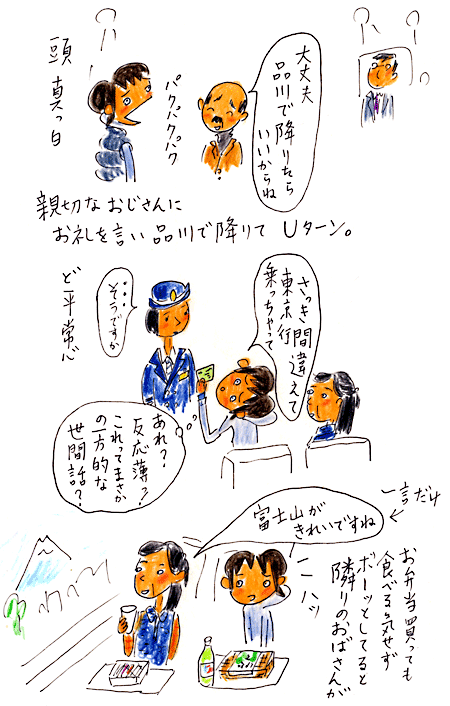 大丈夫
品川で降りたら
いいからね
パクパクパク
頭真っ白
親切なおじさんに
お礼を言い品川で降りてUターン。
さっき間違えて
東京行
乗っちゃって
・・・
そうですか
ど平常心
あれ?
反応薄?
これってまさか
の一方的な
世間話?
一言だけ
富士山が
きれいですね
ハッ
お弁当買っても
食べる気せず
ボーッとしてると
隣りのおばさんが